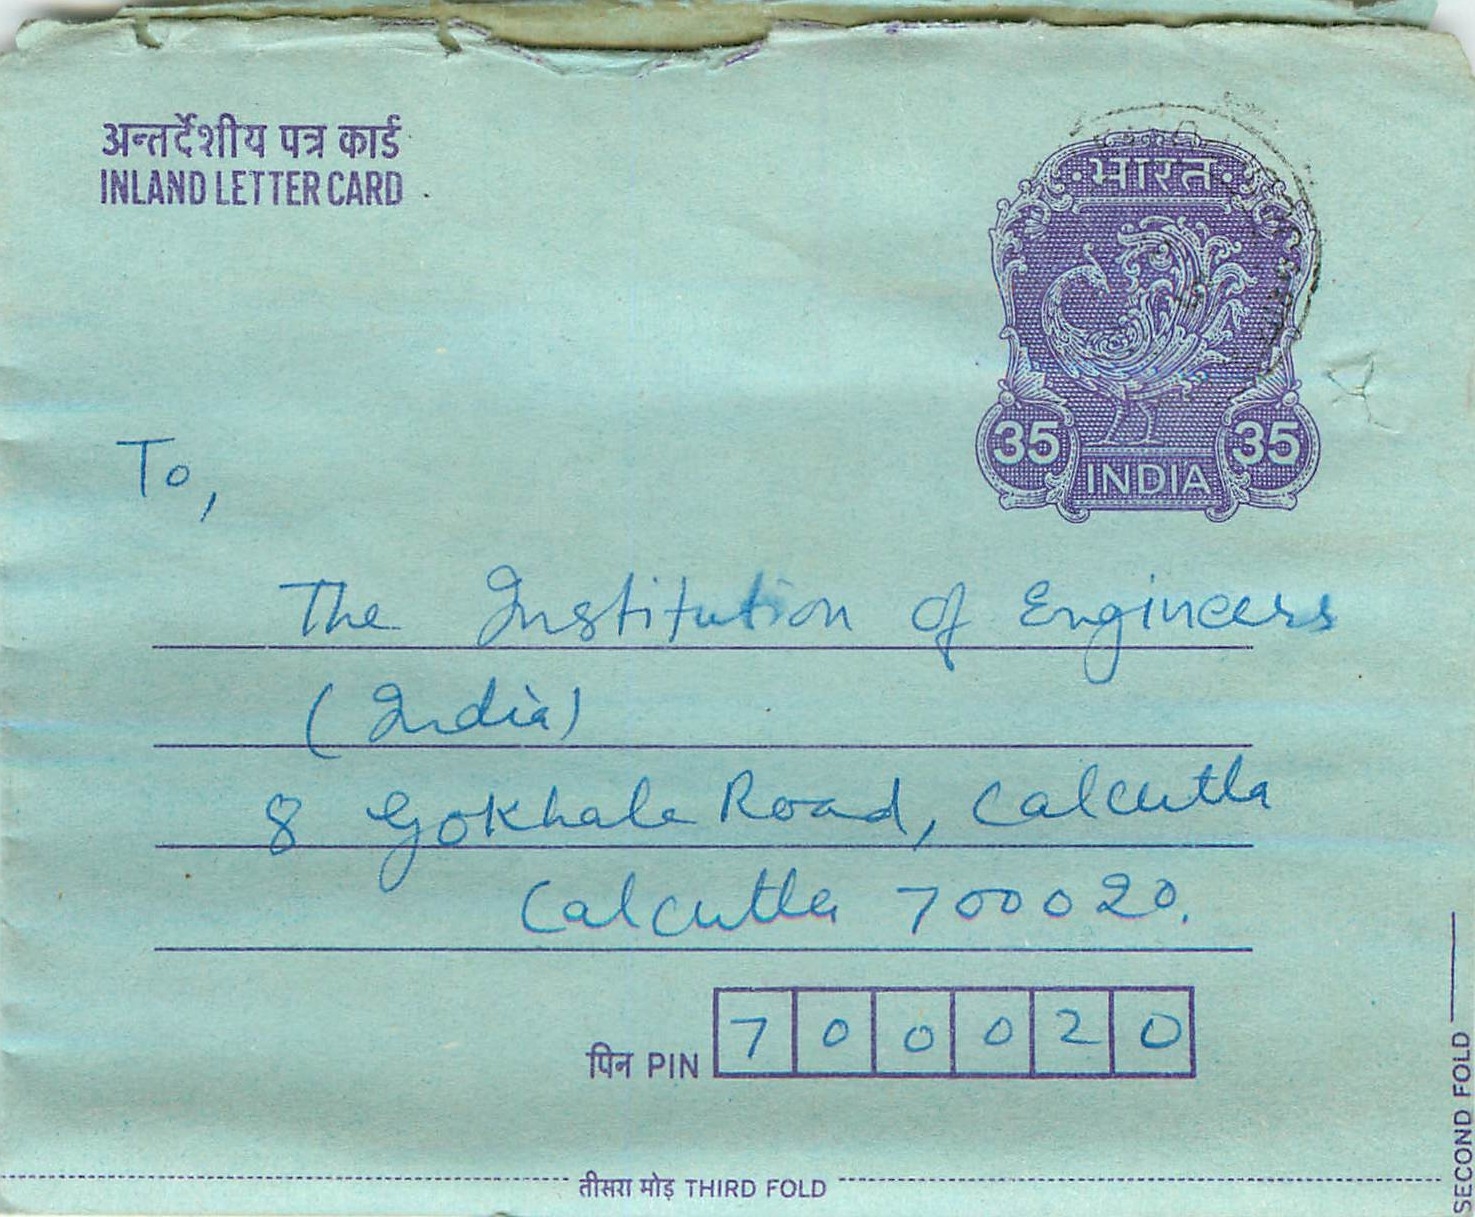 अन्तर्देशीय पत्र कार्ड
INLAND LETTER CARD
भारत
35 35
INDIA
To,
The Institution of Engineers
(India)
8 Gokhale Road, Calcutta
Calcutta 700020.
पिन PIN 7 0 0 0 2 0
तीसरा मोड़ THIRD FOLD
SECOND FOLD